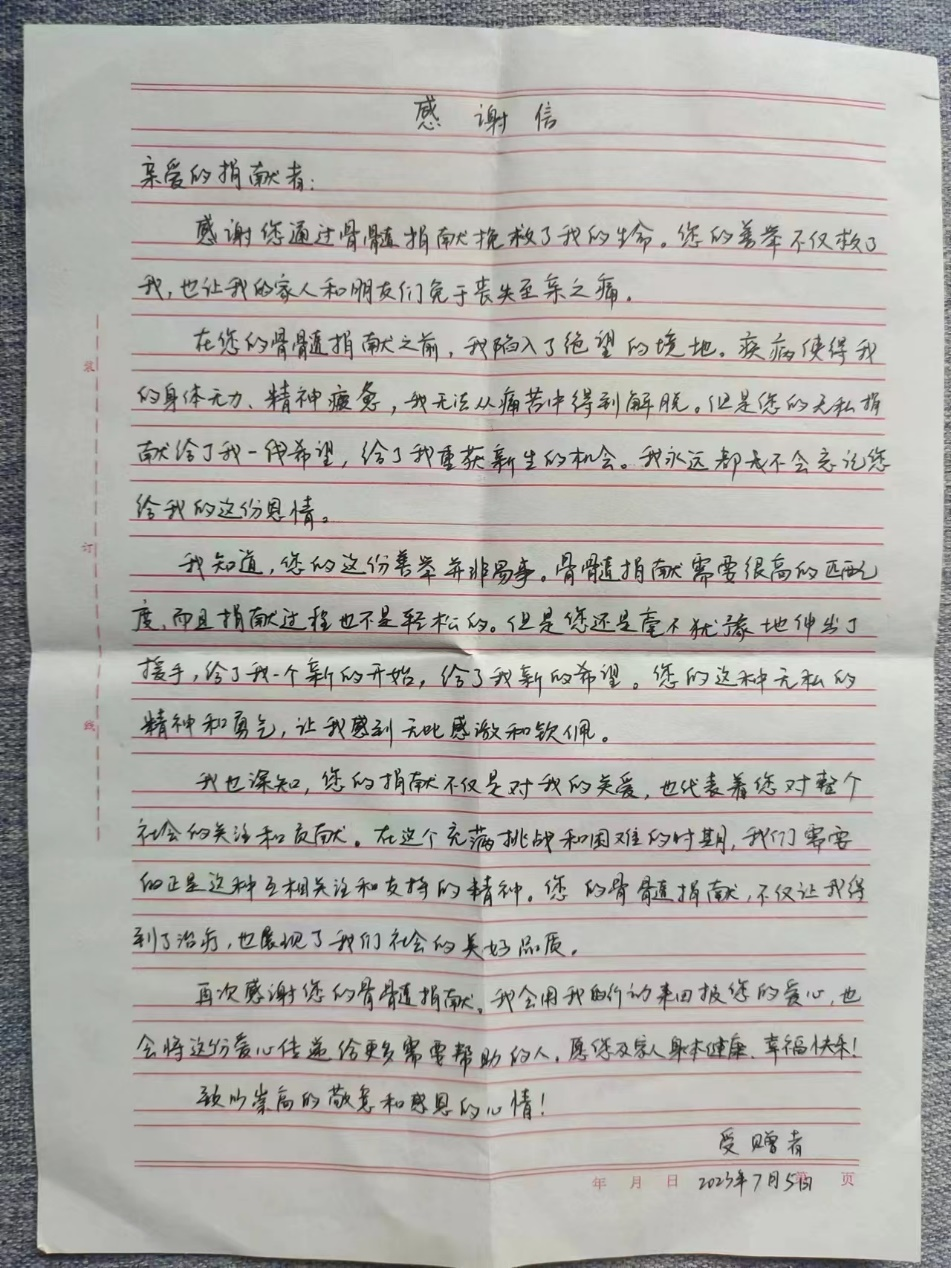 感谢信
亲爱的捐献者：
感谢您通过骨髓捐献挽救了我的生命。您的善举不仅救了
我，也让我的家人和朋友们免于丧失至亲之痛。
在您的骨髓捐献之前，我陷入了绝望的境地。疾病使得我
的身体无力、精神疲惫，我无法从痛苦中得到解脱。但是您的无私捐
献给了我一线希望，给了我重获新生的机会。我永远都不会忘记您
给我的这份恩情。
我知道，您的这份善举并非易事。骨髓捐献需要很高的匹配
度，而且捐献过程也不是轻松的。但是您还是毫不犹豫地伸出了
援手，给了我一个新的开始，给了我新的希望。您的这种无私的
精神和勇气，让我感到无比感激和钦佩。
我也深知，您的捐献不仅是对我的关爱，也代表着您对整个
社会的关注和贡献。在这个充满挑战和困难的时期，我们需要
的正是这种互相关注和支持的精神。您的骨髓捐献，不仅让我得
到了治疗，也展现了我们社会的美好品质。
再次感谢您的骨髓捐献，我会用我的行动来回报您的爱心，也
会将这份爱心传递给更多需要帮助的人。愿您及家人身体健康、幸福快乐！
致以崇高的敬意和感恩的心情！
受赠者
年 月 日 2023年7月5日 页
装
订
线